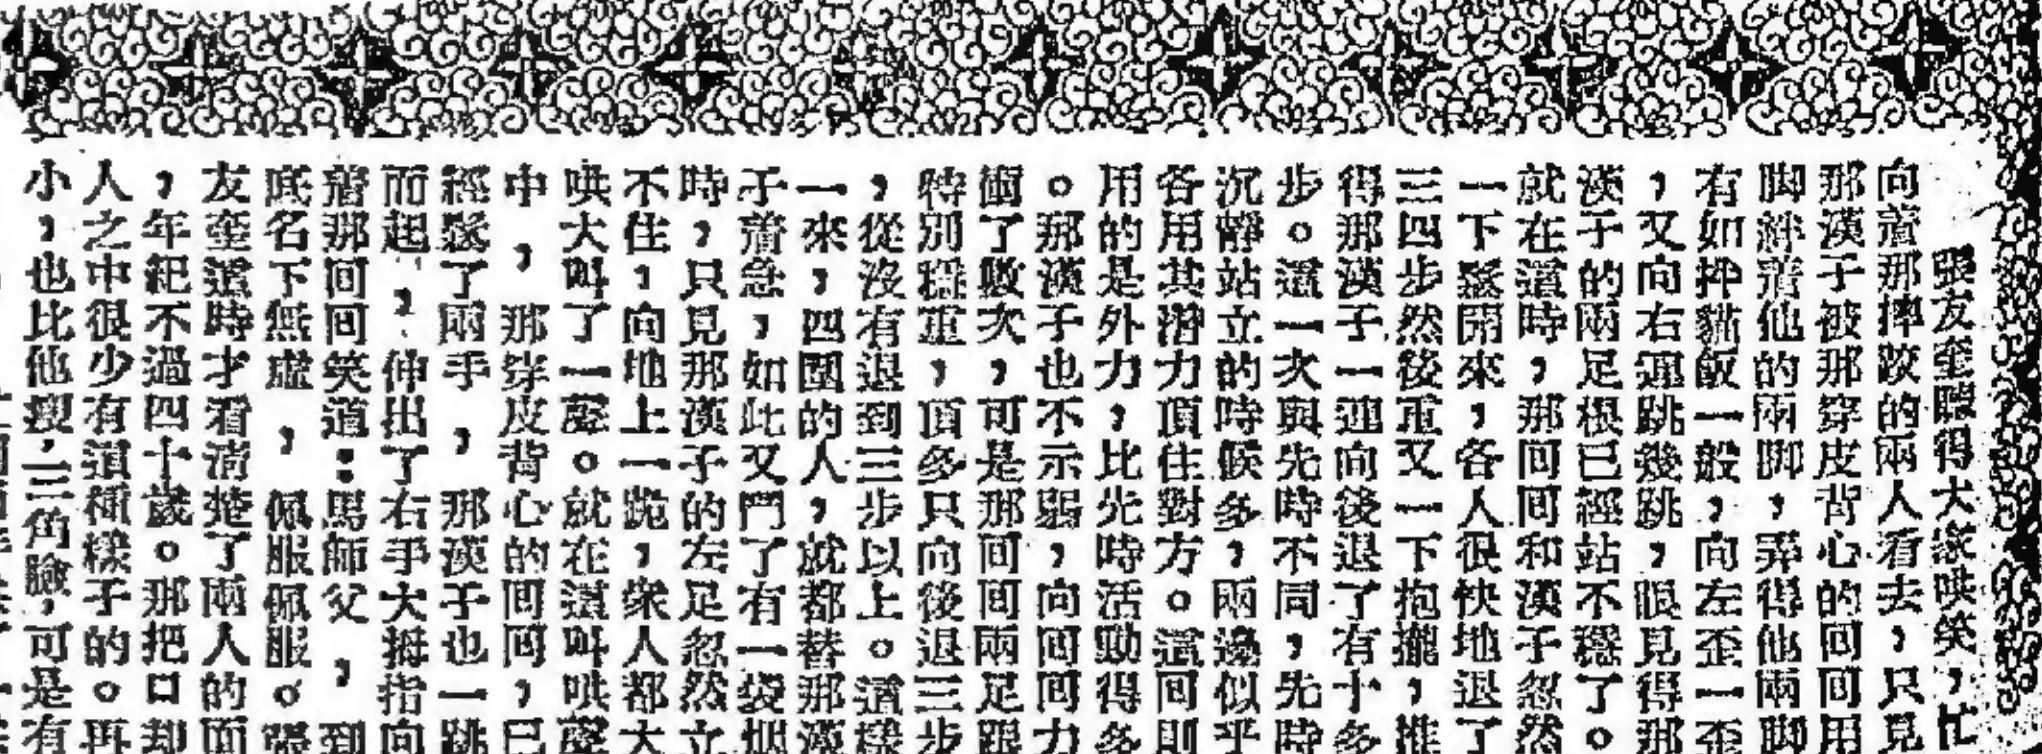 張友奎聽得大家哄笑，忙
向着那摔跤的兩人看去，只見
那漢子被那穿皮背心的回回用
脚絆着他的兩脚，弄得他兩脚
有如拌貓飯一般，向左歪一歪
，又向右連跳幾跳，眼見得那
漢子的兩足根已經站不穩了。
就在這時，那回回和漢子忽然
一下鬆開來，各人很快地退了
三四步然後重又一下抱攏，推
得那漢子一連向後退了有十多
步。這一次與先時不同，先時
沉靜站立的時候多，兩邊似乎
各用其潛力頂住對方。這回則
用的是外力，比先時活動得多
。那漢子也不示弱，向回回力
衝了數次，可是那回回兩足跟
特別穩重，頂多只向後退三步
，從沒有退到三步以上。這樣
一來，四圍的人，就都替那漢
子着急，如此又鬥了有一袋烟
時，只見那漢子的左足忽然立
不住，向地上一跪，衆人都大
哄大叫了一聲。就在這叫哄聲
中，那穿皮背心的回回，已
經鬆了兩手，那漢子也一跳
而起，伸出了右手大拇指向
着那回回笑道：馬師父，到
底名下無虛，佩服佩服。張
友奎這時才看清楚了兩人的面
，年紀不過四十歲。那把口却
人之中很少有這種樣子的。再
小，也比他瘦，三角臉，可是有